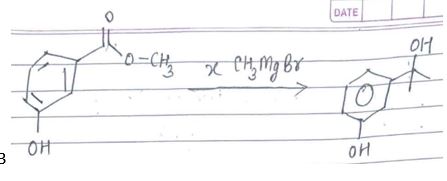 DATE
O
OH
O-CH3
x CH3MgBr
OH
OH
3